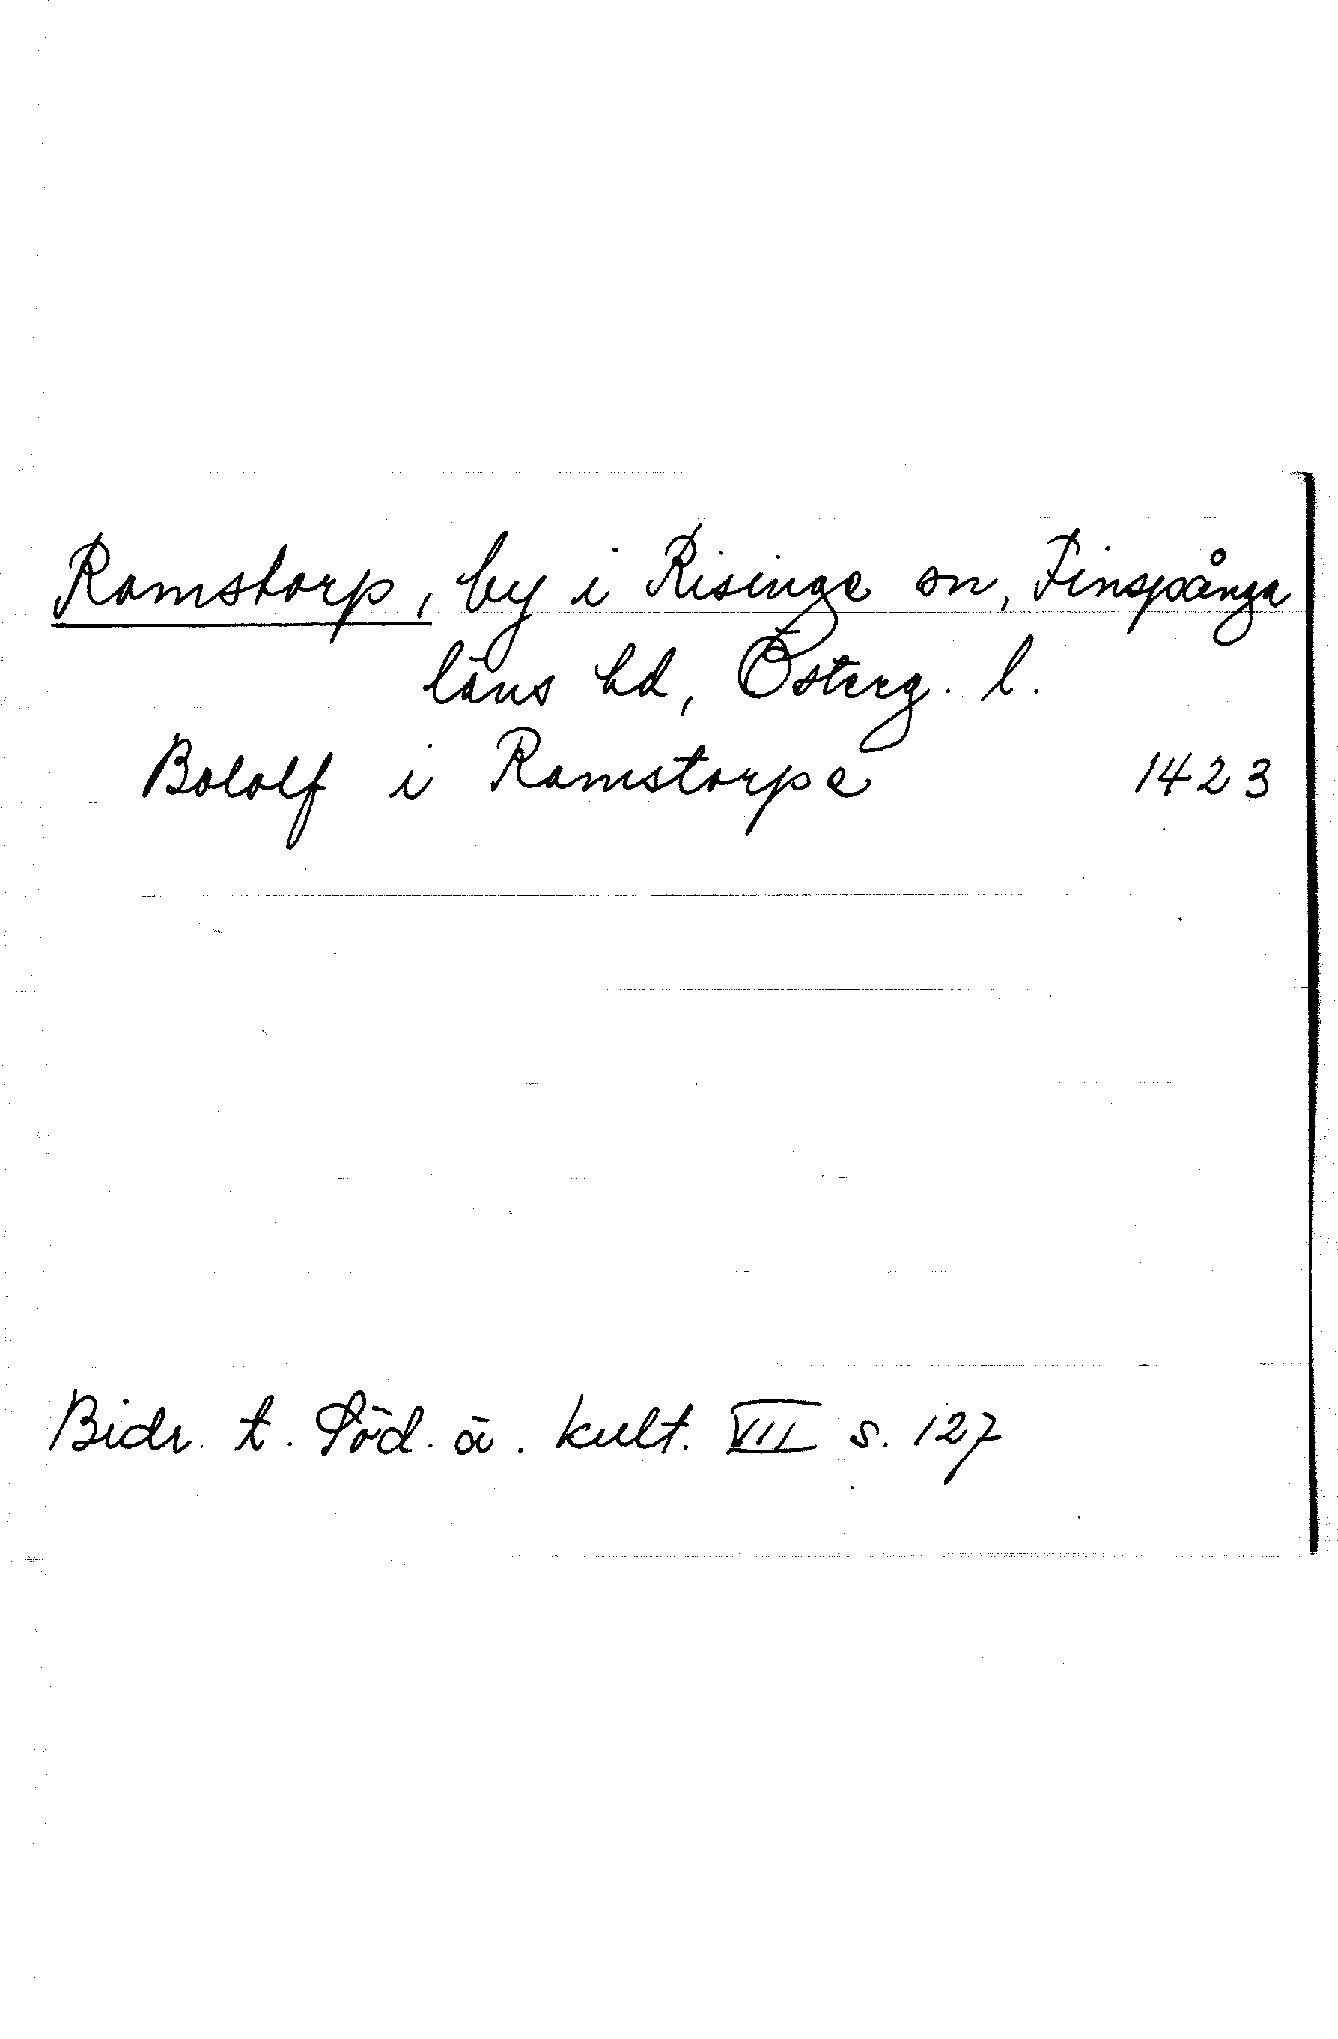 Ramstorp, by i Risinge sn, Finspånga
läns hd, Österg. l.
Bololf i Ramstorpe 1423
Bidr. t. Söd. ä. kult. VII s. 127